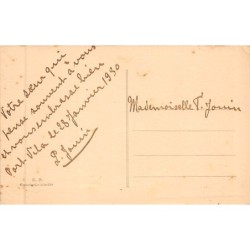 Votre sœur qui
pense souvent à vous
et vous embrasse bien
Port-Vila le 23 Janvier 1930
Mademoiselle T. Jouin